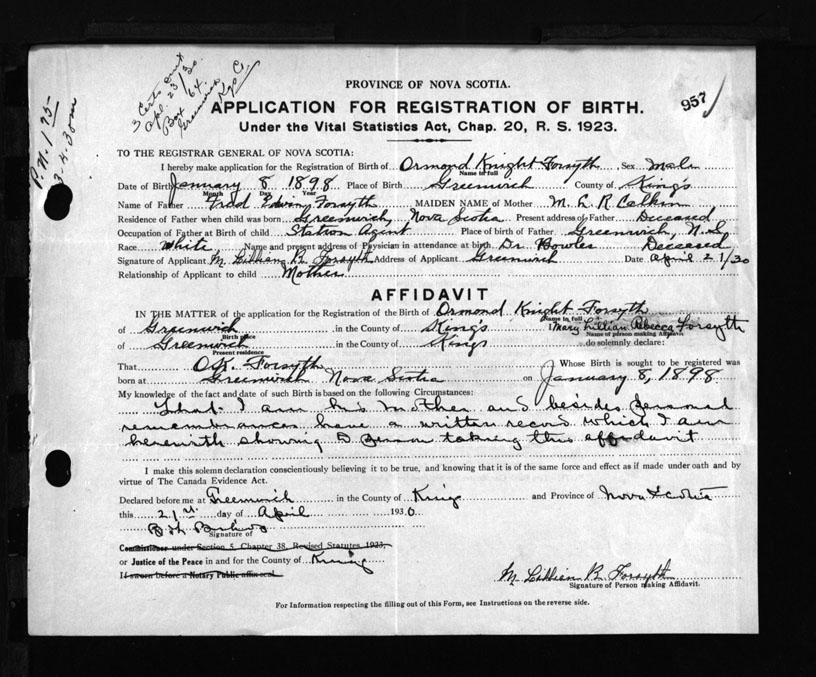 3 Certs sent
Apl. 23/30.
Box 64.
Greenwich
Kgs Co
957
P.N. 1795
3.4.30
PROVINCE OF NOVA SCOTIA.
APPLICATION FOR REGISTRATION OF BIRTH.
Under the Vital Statistics Act, Chap. 20, R. S. 1923.
TO THE REGISTRAR GENERAL OF NOVA SCOTIA:
I hereby make application for the Registration of Birth of Ormond Knight Forsyth Sex Male
Name in full
Date of Birth January 8 1898 Place of Birth Greenwich County of Kings
Month Day Year
Name of Father Fred Edwin Forsyth MAIDEN NAME of Mother M. L. R Calkin
Residence of Father when child was born Greenwich, Nova Scotia Present address of Father Deceased
Occupation of Father at Birth of child Station Agent Place of birth of Father Greenwich, N.S.
Race White Name and present address of Physician in attendance at birth Dr. Bowles Deceased
Signature of Applicant M. Lillian R. Forsyth Address of Applicant Greenwich Date April 21/30
Relationship of Applicant to child Mother
AFFIDAVIT
IN THE MATTER of the application for the Registration of the Birth of Ormond Knight Forsyth
Name in full
of Greenwich in the County of Kings I Mary Lillian Rebecca Forsyth
Birth place Name of person making Affidavit
of Greenwich in the County of Kings do solemnly declare:
Present residence
That O.K. Forsyth Whose Birth is sought to be registered was
born at Greenwich Nova Scotia on January 8, 1898
My knowledge of the fact and date of such Birth is based on the following Circumstances:
That I am his mother and besides personal
remembrances have a written record which I am
herewith showing to person taking this affidavit
I make this solemn declaration conscientiously believing it to be true, and knowing that it is of the same force and effect as if made under oath and by
virtue of The Canada Evidence Act.
Declared before me at Greenwich in the County of Kings and Province of Nova Scotia
this 21st day of April 1930
Signature of
Commissioner under Section 5, Chapter 38, Revised Statutes 1923,
or Justice of the Peace in and for the County of Kings
If sworn before a Notary Public affix seal
M. Lillian R. Forsyth
Signature of Person making Affidavit.
For Information respecting the filling out of this Form, see Instructions on the reverse side.